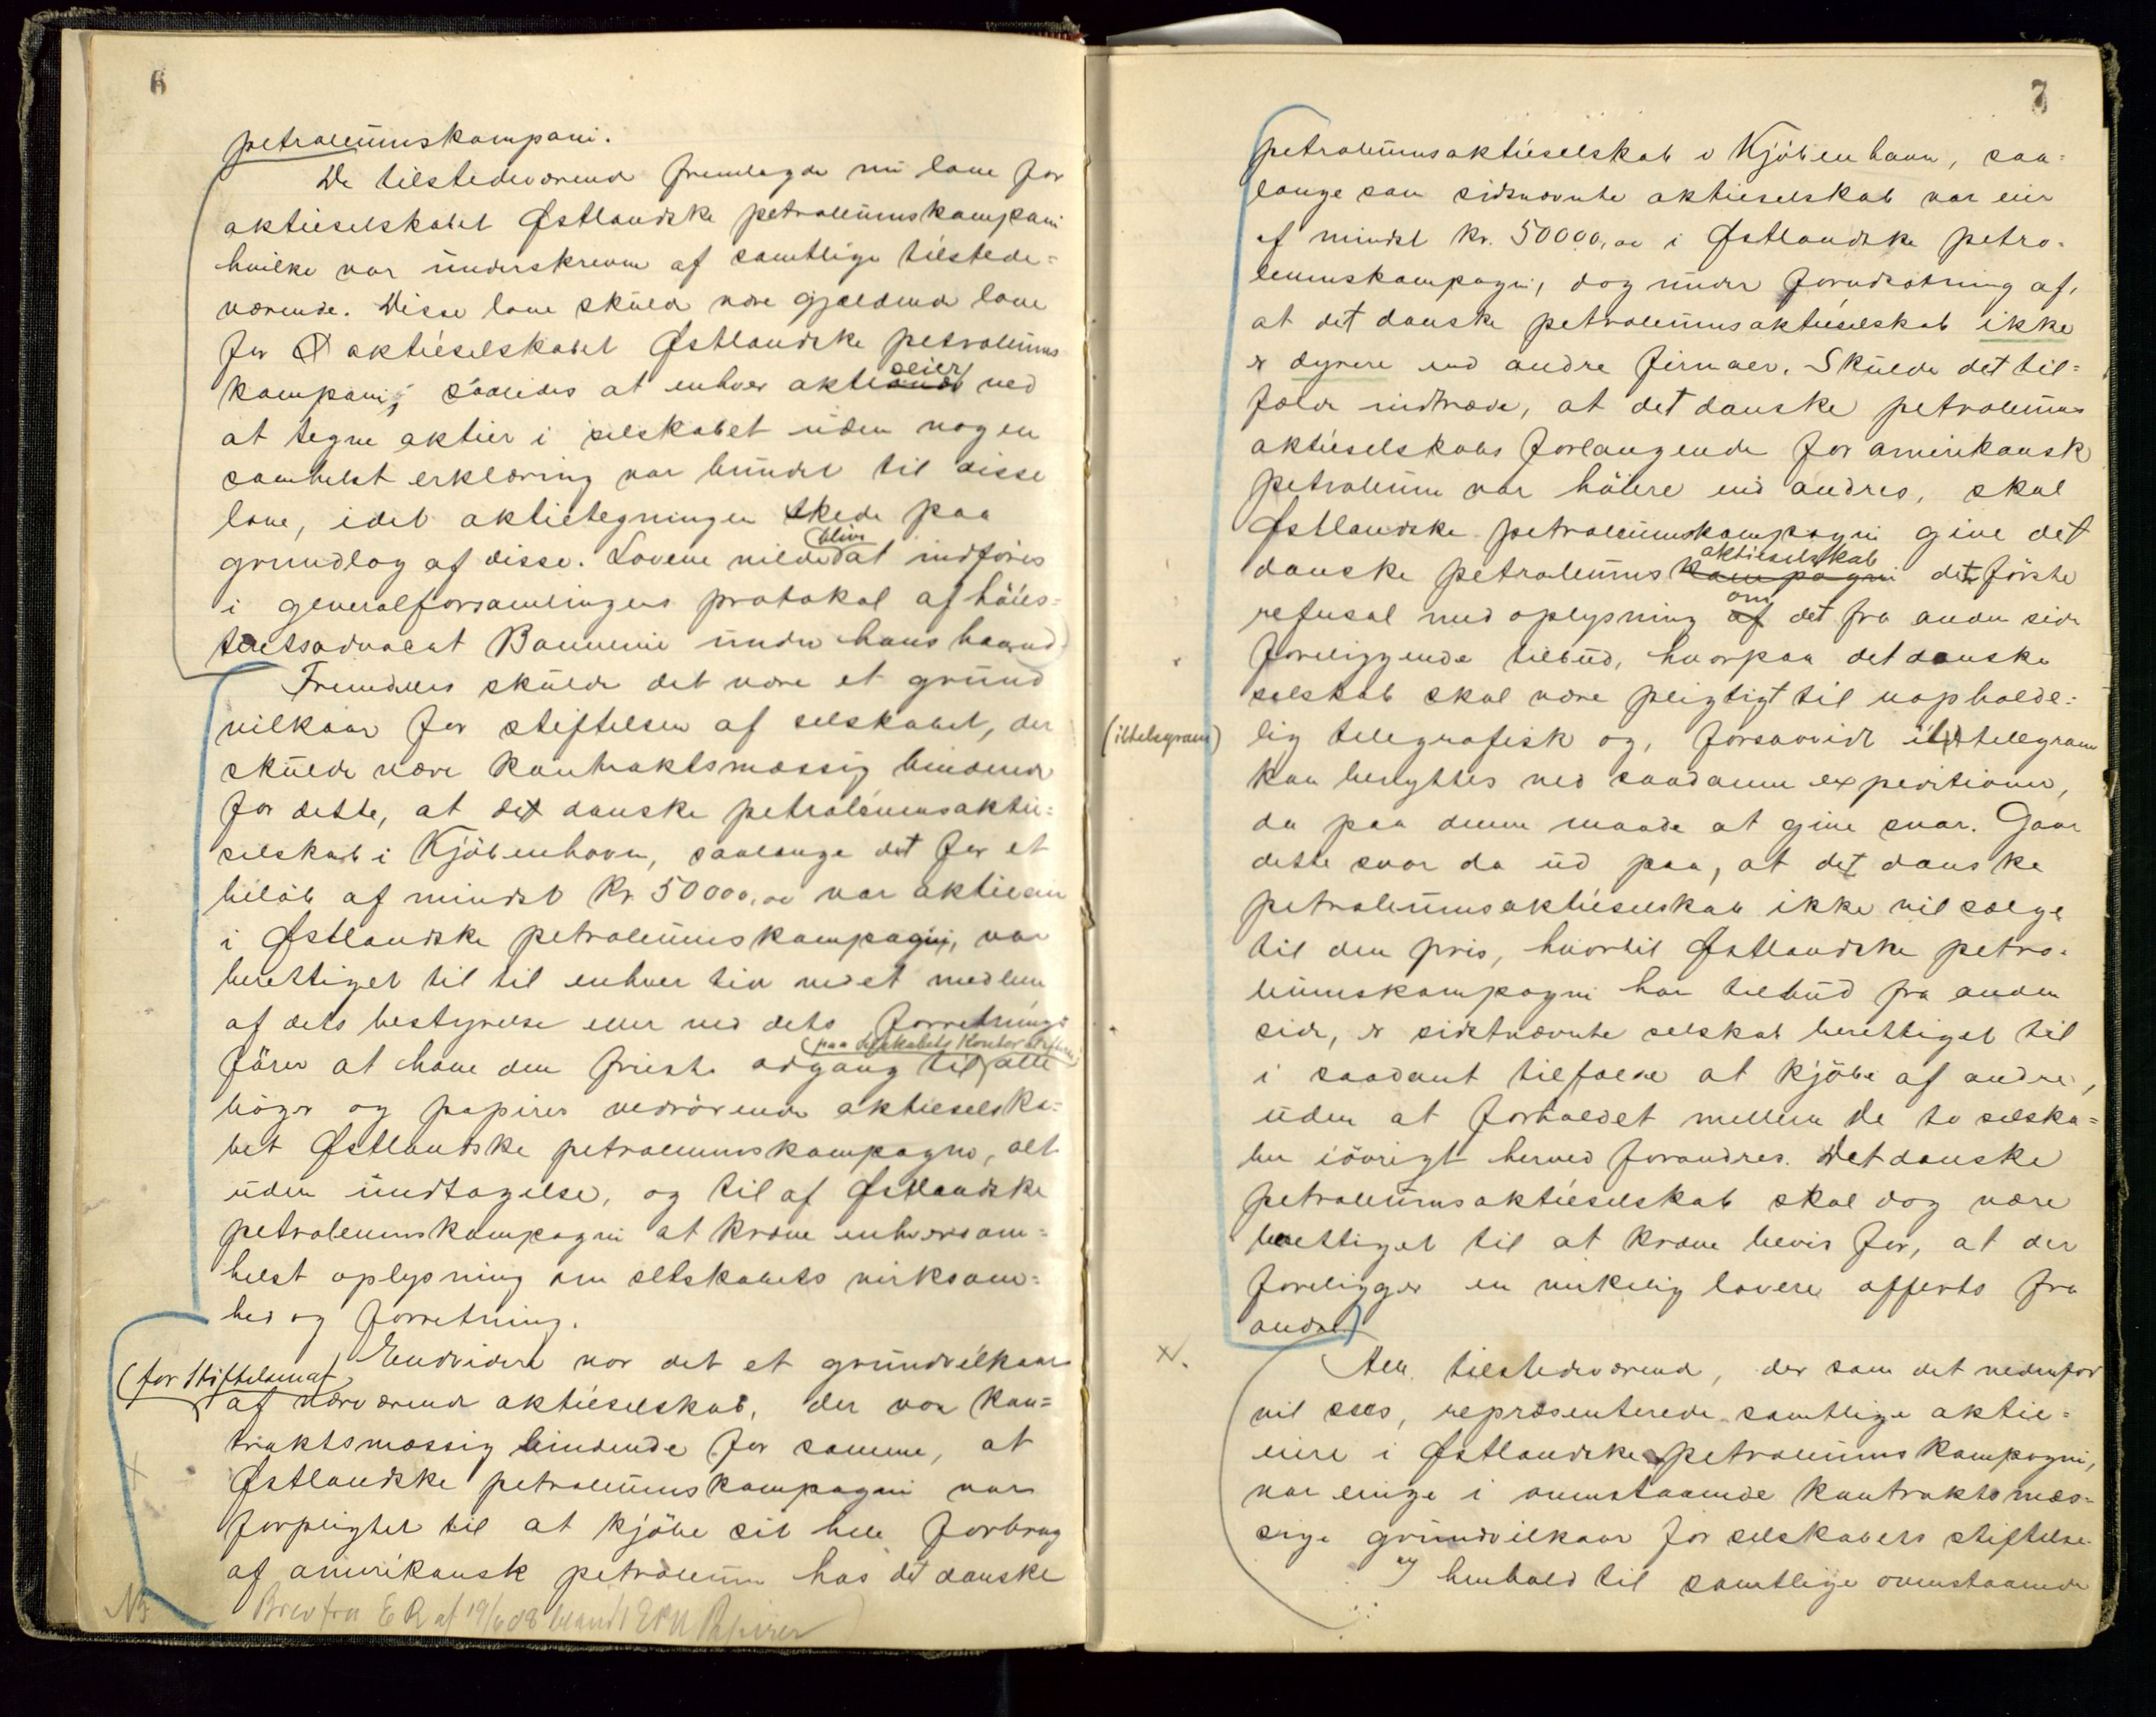 6
petroleumskompani.
De tilstedeværende fremlagde nu love for
aktieselskabet Østlandske petroleumskompani
hvilke var underskrevne af samtlige tilstede=
værende. Disse love skulde være gjældende love
for aktieselskabet Østlandske petroleums
kompani, saaledes at enhver aktieeier ved
at tegne aktier i selskabet uden nogen
somhelst erklæring var bundet til disse
love, idet aktietegningen skede paa
grundlag af disse. Lovene vilde blive at indføres
i generalforsamlingens protokol af høies=
teretsadvokat under hans haand
Fremdeles skulde det være et grund
vilkaar for stiftelsen af selskabet, der
skulde være kontraktsmæssig bindende
for dette, at det danske petroleumsaktie=
selskab i Kjøbenhavn, saalænge det for et
beløb af mindst Kr. 50000,00 var aktieeier
i Østlandske petroleumskompagni, var
berettiget til til enhver tid ved et medlem
af dets bestyrelse eller ved dets forretnings
fører at have den frieste adgang til (paa selskabets kontor) alle
bøger og papirer vedrørende aktieselska=
bet Østlandske petroleumskompagni, alt
uden undtagelse, og til af Østlandske
petroleumskompagni at kræve enhversom=
helst oplysning om selskabets virksom=
hed og forretning.
Endvidere var det et grundvilkaar
(for stiftelsen af
af nærværende aktieselskab, der var kon=
traktsmæssig bindende for samme, at
Østlandske petroleumskompagni var
forpligtet til at kjøbe sit hele forbrug
af amerikansk petroleum hos det danske
NB Brev fra E R af 19/6 08 blandt Papirer
7
petroleumsaktieselskab i Kjøbenhavn, saa=
længe som sidstnævnte aktieselskab var eier
af mindst kr. 50000,00 i Østlandske petro=
leumskompagni, dog under forudsætning af,
at det danske petroleumsaktieselskab ikke
er dyrere end andre firmaer. Skulde det til=
fælde indtræde, at det danske petroleums
aktieselskabs forlangende for amerikansk
petroleum var høiere end andres, skal
Østlandske petroleumskompagni give det
danske petroleums kompagni aktieselskab det første
refusal med oplysning af om det fra anden side
foreliggende tilbud, hvorpaa det danske
selskab skal være pligtigt til uopholde=
(iltelegram) lig telegrafisk og, forsaavidt iltelegram
kan benyttes ved saadanne expeditioner,
da paa denne maade at give svar. Gaar
dette svar da ud paa, at det danske
petroleumsaktieselskab ikke vil sælge
til den pris, hvortil Østlandske petro=
leumskompagni har tilbud fra anden
side, er sidstnævnte selskab berettiget til
i saadant tilfælde at kjøbe af andre,
uden at forholdet mellem de to selska=
ber iøvrigt herved forandres. Det danske
petroleumsaktieselskab skal dog være
berettiget til at kræve bevis for, at der
foreligger en virkelig lavere offerte fra
andre)
Alle tilstedeværende, der som det nedenfor
vil sees, repræsenterede samtlige aktie=
eiere i Østlandske petroleumskompagni,
var enige i ovenstaaende kontraktsmæs=
sige grundvilkaar for selskabets stiftelse.
I henhold til samtlige ovenstaaende